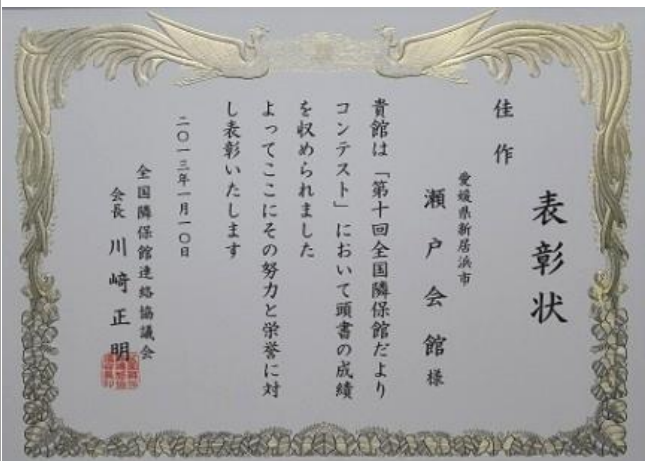 表彰状
佳作
愛媛県新居浜市
瀬戸会館様
貴館は「第十回全国隣保館だより
コンテスト」において頭書の成績
を収められました
よってここにその努力と栄誉に対
し表彰いたします
二〇一三年一月一〇日
全国隣保館連絡協議会
会長 川﨑正明